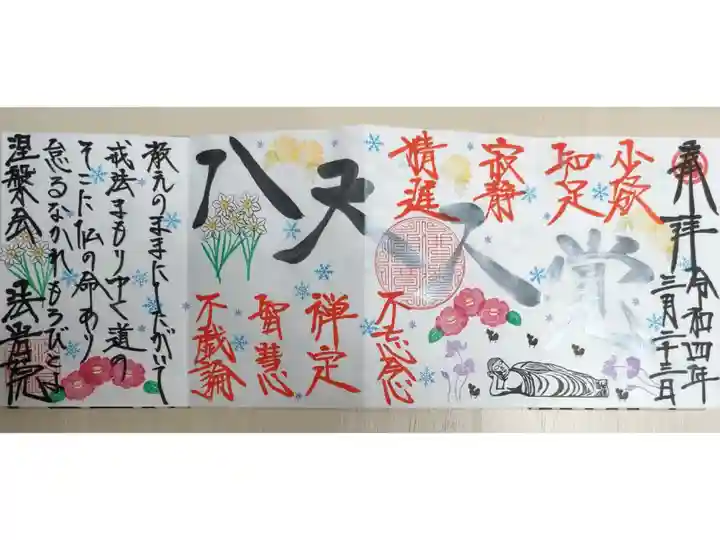 奉拝
令和四年
三月二十三日
少欲
知足
寂静
精進
八大人覚
不忘念
禅定
智慧
不戯論
教えのままにしたがいて
戒法まもりゆく道の
そこに仏の命あり
怠るなかれもろびとよ
涅槃会